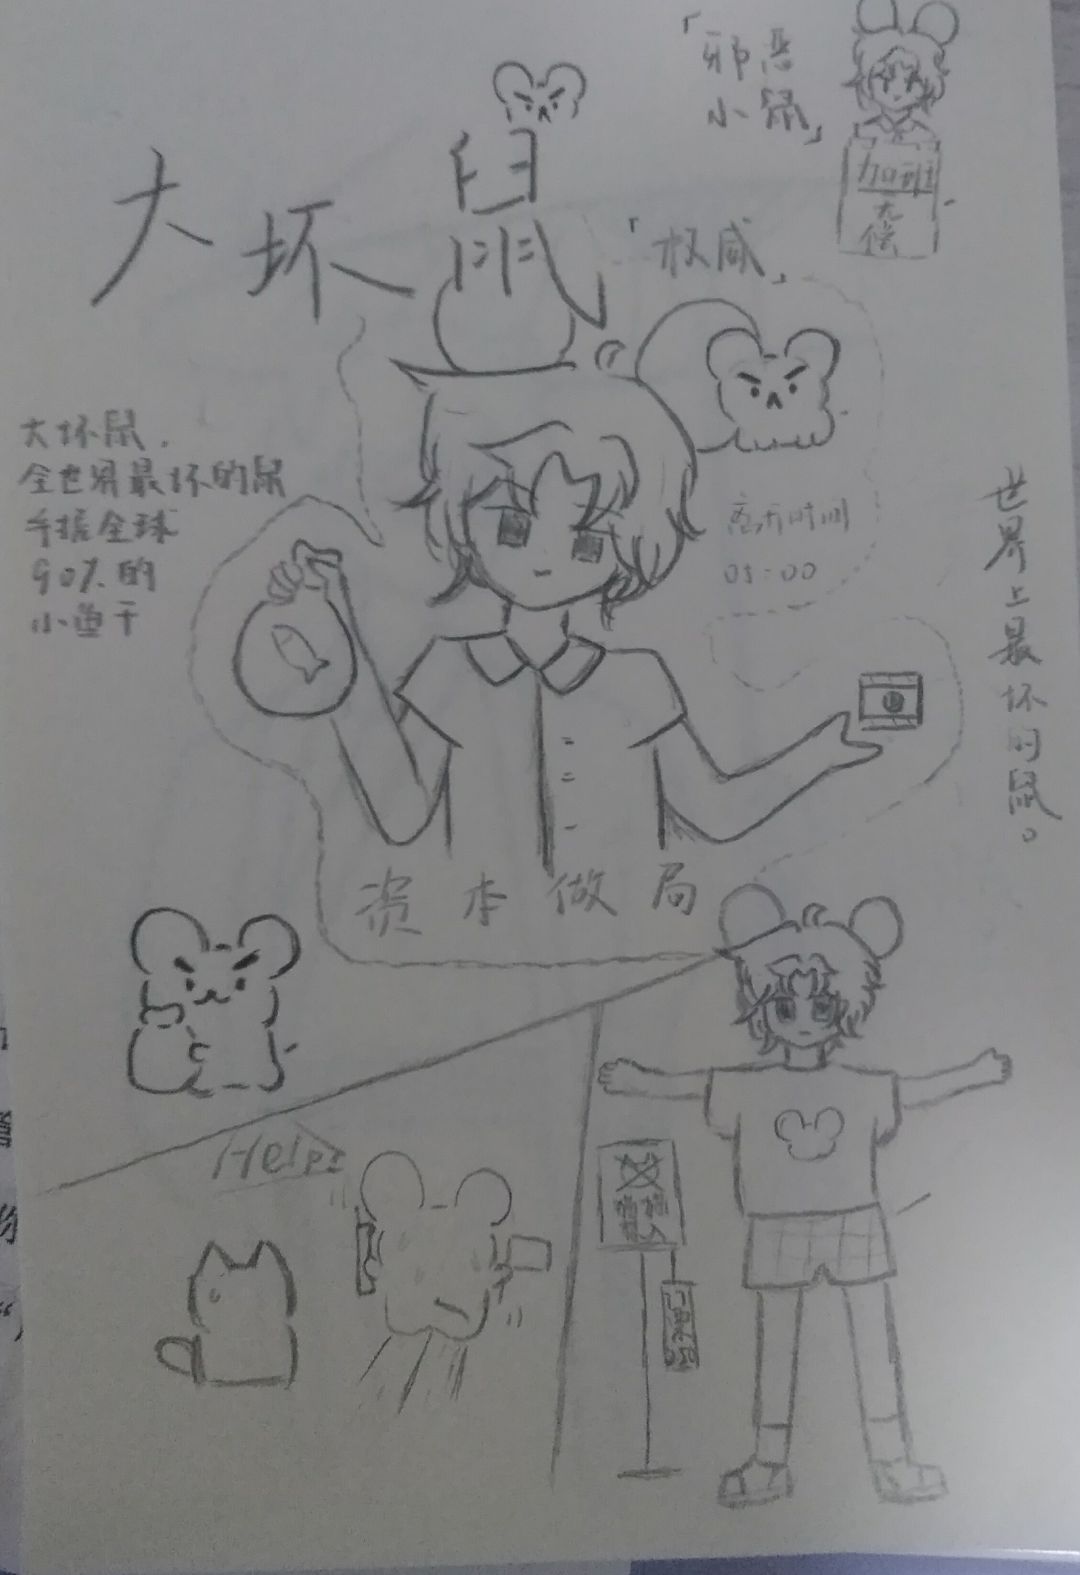 「邪恶
小鼠」
加班
无
偿
大坏鼠
「权威」
大坏鼠.
全世界最坏的鼠
手握全球
90%的
小鱼干
离开时间
05:00
世界上最坏的鼠。
资本做局
Help!